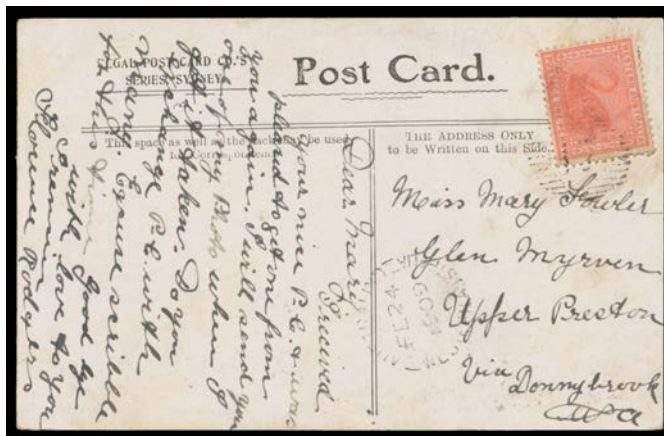 Post Card.
LEGAL POSTCARD CO.'S
SERIES, SYDNEY
This space as well as the back may be used
for Correspondence.
THE ADDRESS ONLY
to be Written on this Side.
Miss Mary Fowler
Glen Myrven
Upper Preston
Via
Donnybrook
W A
Dear Mary
I received
your nice P.C. & was
pleased to get one from
you again. I will send you
one of my Photo when I
get it taken. Do you
exchange P.C. with
many. Excuse scribble
for this time Good bye
with love to you
I remain
Florence Rodgers